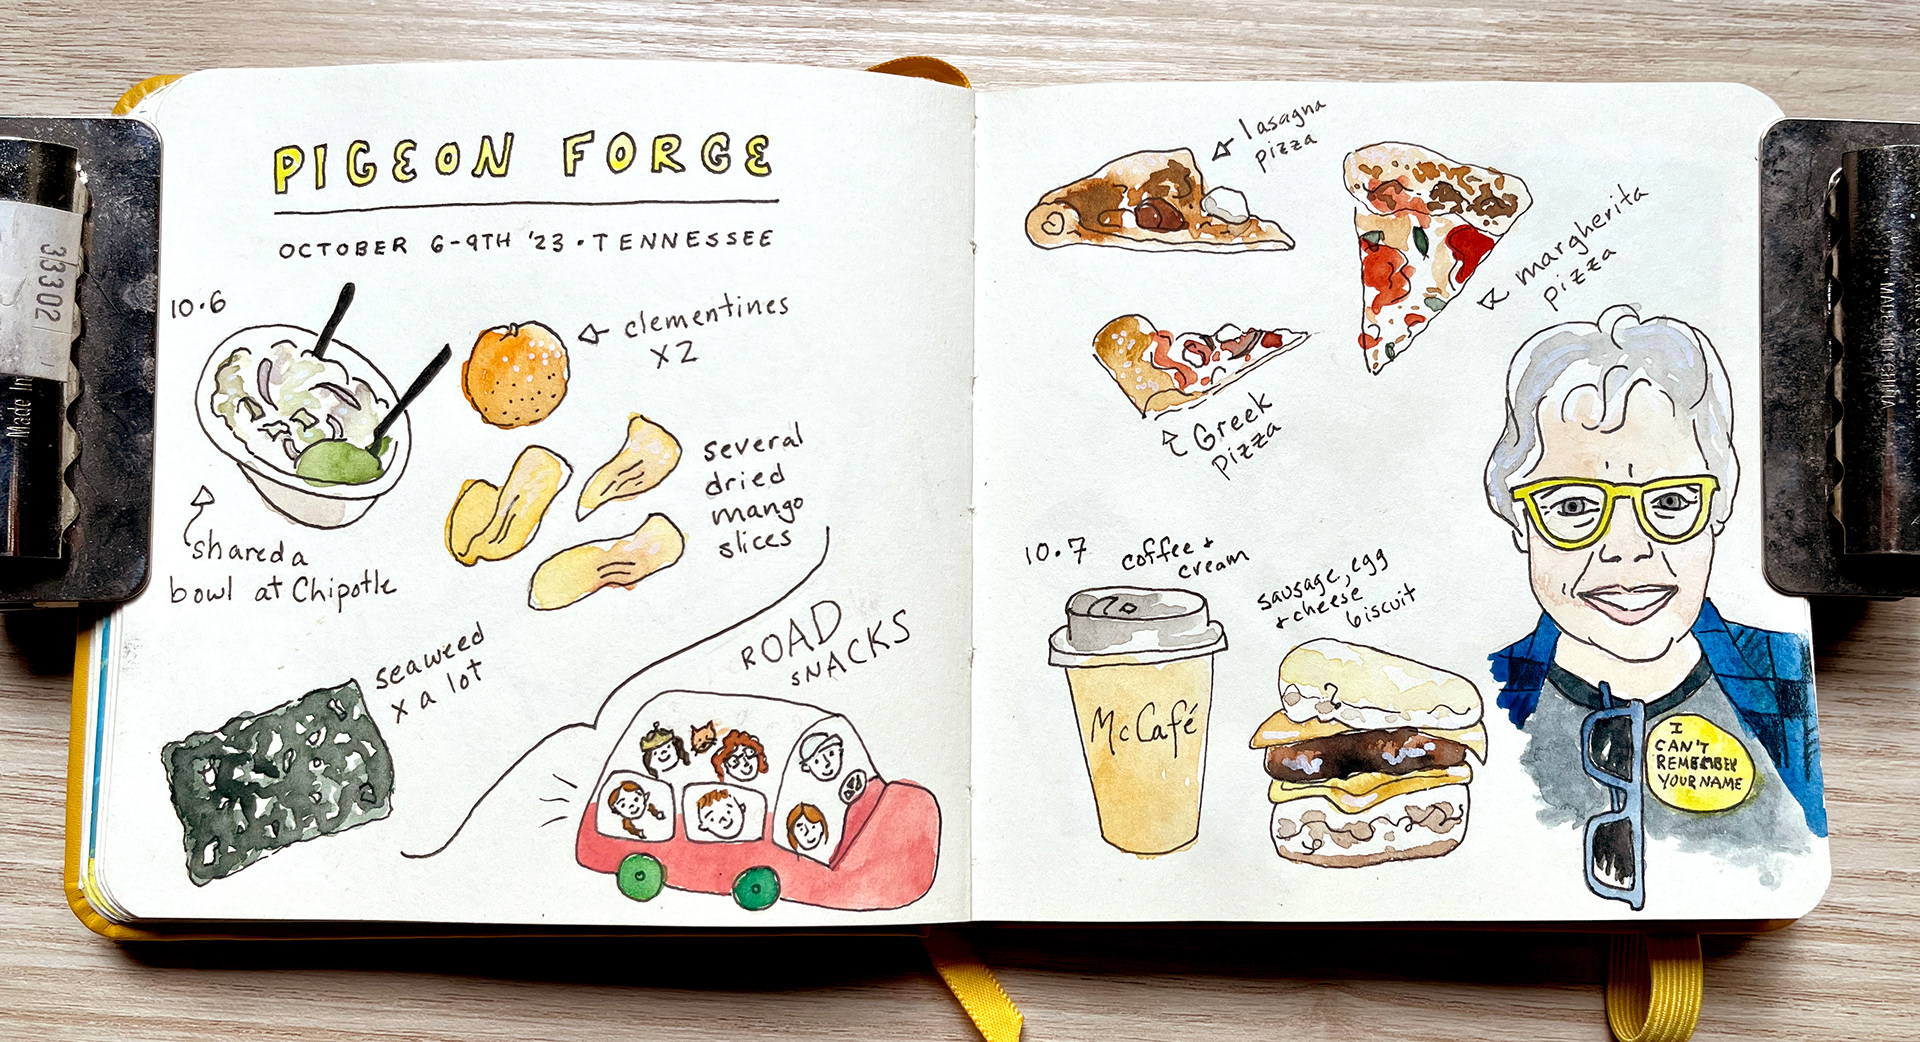 PIGEON FORGE
OCTOBER 6-9TH '23 • TENNESSEE
10•6
clementines
x2
shared a
bowl at Chipotle
several
dried
mango
slices
seaweed
x a lot
ROAD
SNACKS
lasagna
pizza
margherita
pizza
Greek
pizza
10.7
coffee +
cream
sausage, egg
+ cheese
biscuit
McCafé
I
CAN'T
REMEMBER
YOUR NAME
33302
Made In
MADE IN CHINA